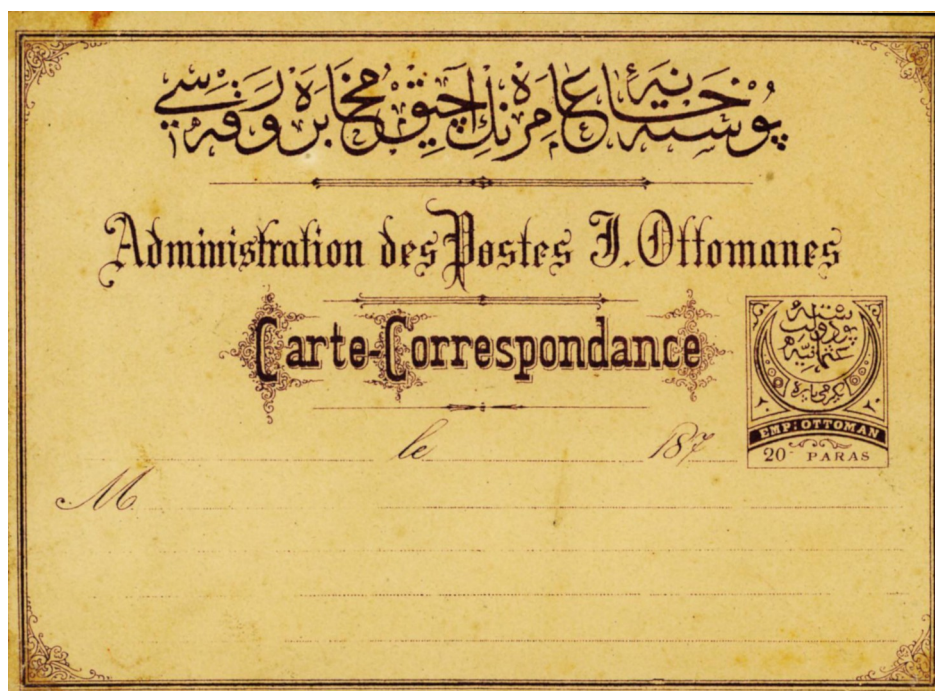 پوسته خانهٔ عامره‌نك آچیق مخابره ورقه‌سی
Administration des Postes I. Ottomanes
Carte-Correspondance
پوستهٔ دولت عثمانیه
یکرمی پاره
٢٠ ٢٠
EMP: OTTOMAN
20 PARAS
le 187
M